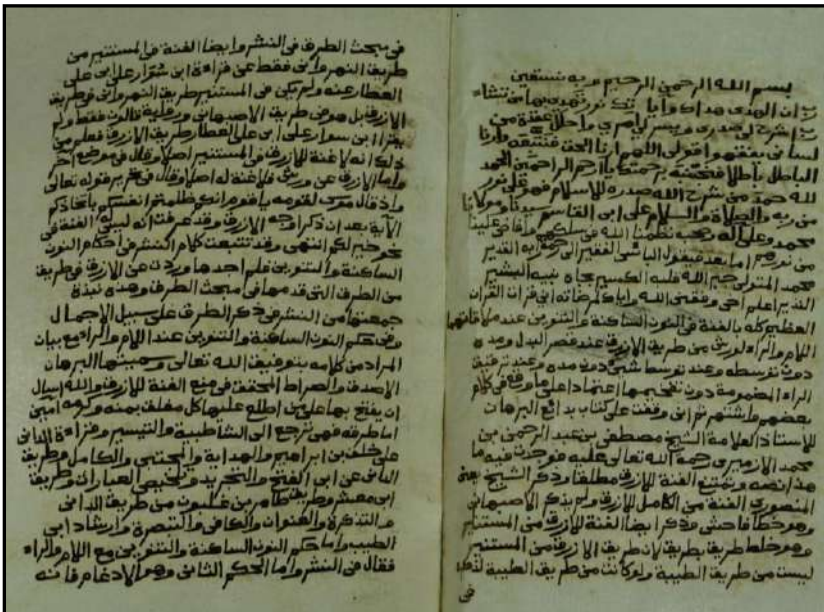 بسم الله الرحمن الرحيم وبه نستعين
رب ان الهدى هداك واياتك نور تهدي بها من تشاء
رب اشرح لي صدري ويسر لي امري واحلل عقدة من
لساني يفقهوا قولي اللهم ارنا الحق فنتبعه وارنا
الباطل باطلا فنجتنبه برحمتك يا ارحم الراحمين الحمد
لله حمد من شرح الله صدره للاسلام فهو على نور
من ربه والصلاة والسلام على ابي القاسم سيدنا ومولانا
محمد وعلى اله وصحبه نظمنا الله في سلكهم وافاض علينا
من نورهم اما بعد فيقول الفقير الى رحمة ربه القدير
محمد المتولى جبر الله قلبه الكسير بجاه نبيه البشير
النذير اعلم اخي وفقني الله واياك لمرضاته اني قرات القران
العظيم كله بالغنة في النون الساكنة والتنوين عند ملاقاتهما
اللام والراء لورش من طريق الازرق عند قصر البدل ومده
دون توسطه وعند توسط شيء دون مده وعند ترقيق
الراء المضمومة دون تفخيمها اعتمادا على ما وقع في كلام
بعضهم واشتهر ثم اني وقفت على كتاب بدائع البرهان
للاستاذ العلامة الشيخ مصطفى بن عبد الرحمن بن
محمد الازميري رحمة الله تعالى عليه فوجدت فيه ما
هذا نصه وتمتنع الغنة للازرق مطلقا وذكر الشيخ يعني
المنصوري الغنة من الكامل للازرق ولم يذكر الاصبهاني
وهو خطا فاحش وذكر ايضا الغنة للازرق من المستنير
وهو خلط طريق بطريق لان طريق الازرق من المستنير
ليست من طريق الطيبة ولو كانت من طريق الطيبة لذكر
في
في مبحث الطرق في النشر وايضا الغنة في المستنير من
طريق النهرواني فقط عن قراءة ابن سوار على ابي علي
العطار عنه ولم يكن في المستنير طريق النهرواني في طريق
الازرق بل هو في طريق الاصبهاني ورواية قالون فقط ولم
يقرا ابن سوار على ابي علي العطار طريق الازرق فعلم من
ذلك انه لا غنة للازرق في المستنير اصلا وقال في موضع اخر
واما الازرق عن ورش فلا غنة له اصلا وقال في تحرير قوله تعالى
واذ قال موسى لقومه يا قوم انكم ظلمتم انفسكم باتخاذكم
الاية بعد ان ذكر اوجه الازرق وقد عرفت انه ليس له الغنة في
نحو خير لكم انتهى وقد تتبعت كلام النشر في احكام النون
الساكنة والتنوين فلم اجدها وردت عن الازرق في طريق
من الطرق التي قدمها في مبحث الطرق وهذه نبذة
جمعتها من النشر في ذكر الطرق على سبيل الاجمال
وفي حكم النون الساكنة والتنوين عند اللام والراء مع بيان
المراد من كلامه بتوفيق الله تعالى وسميتها البرهان
الاصدق والصراط المحقق في منع الغنة للازرق والله اسال
ان يفتح بها على من اطلع عليها كل مغلق بمنه وكرمه امين
اما طرقه فهي ترجع الى الشاطبية والتيسير وقراءة الداني
على خلف بن ابراهيم والهداية والمجتبى والكامل وطريق
الداني عن ابي الفتح والتجريد وتلخيص العبارات وطريق
ابي معشر وطريق طاهر بن غلبون من طريق الداني
والتذكرة والعنوان والكافي والتبصرة وارشاد ابي
الطيب واما حكم النون الساكنة والتنوين مع اللام والراء
فقال في النشر واما الحكم الثاني وهو الادغام فانه